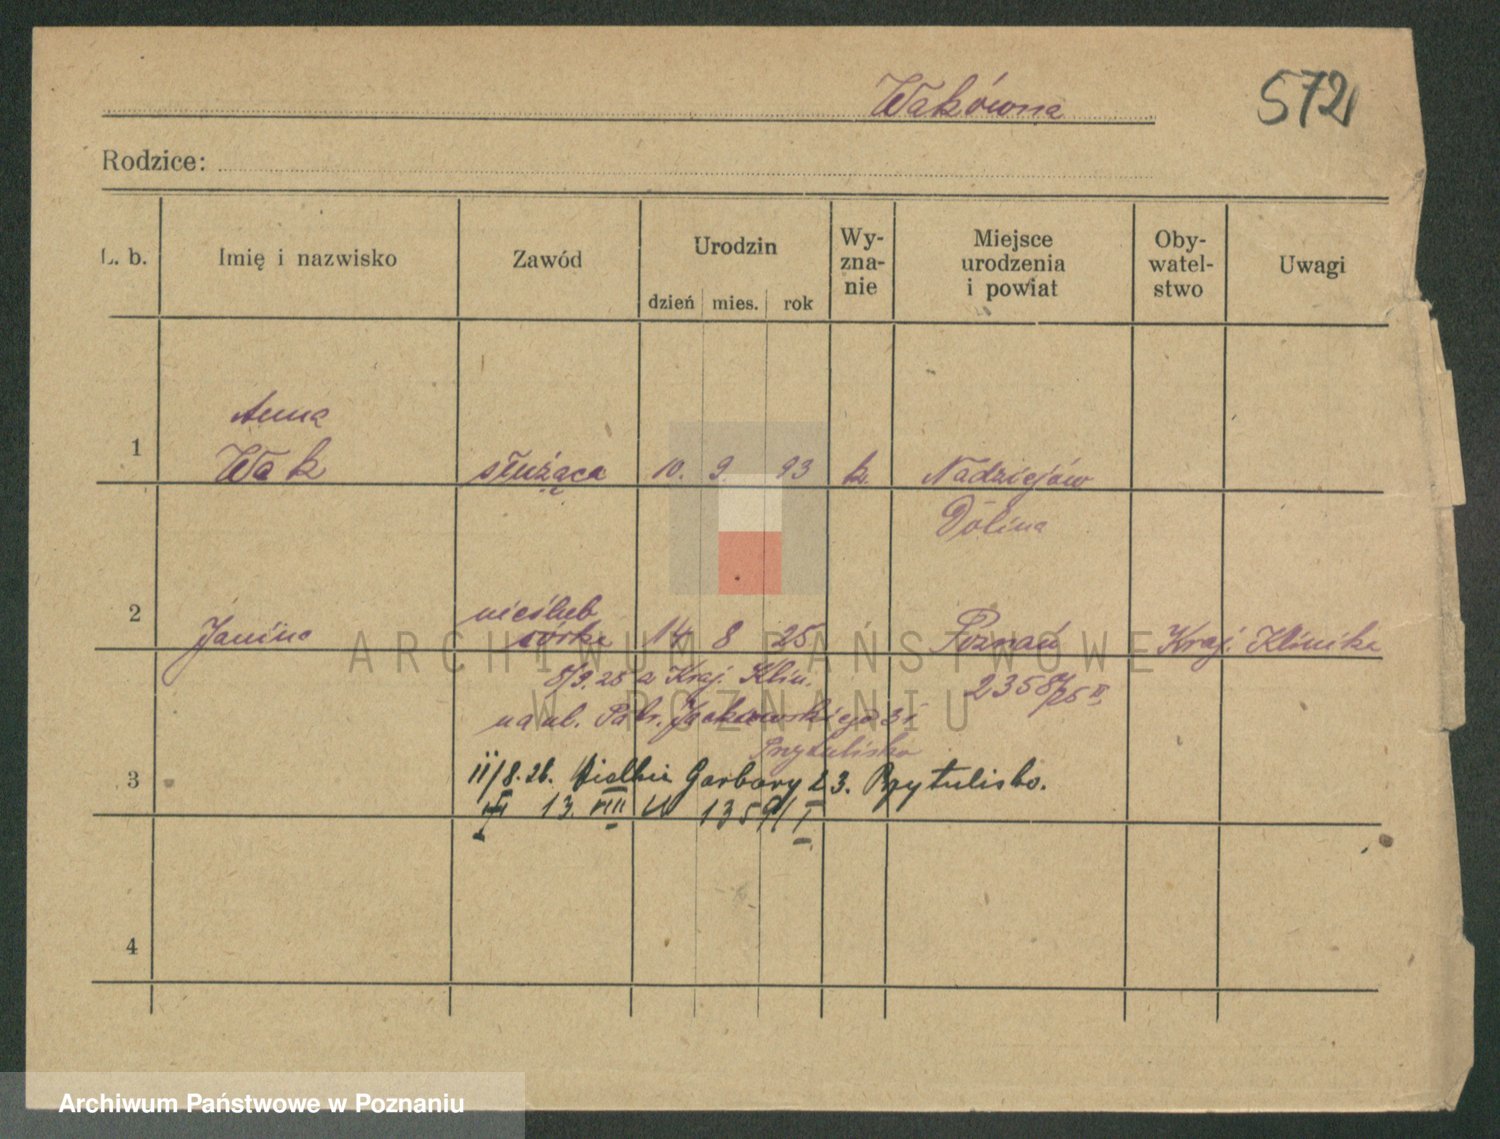 Wakówna
572
Rodzice:
L. b. Imię i nazwisko Zawód Urodzin dzień mies. rok Wy-zna-nie Miejsce urodzenia i powiat Oby-watel-stwo Uwagi
Anna
1 Wak służąca 10. 9. 93 k. Nadziejów
Dolina
nieślub
2 Janina córka 14 8 25 Poznań Kraj. Klinika
8/9.25 z Kraj. Klin. 2358/25 II
na ul. Patr. Jackowskiego
Przytulisko
3 11/8.26. Wielkie Garbary 23. Przytulisko.
13. VIII
4
ARCHIWUM PAŃSTWOWE
W POZNANIU
Archiwum Państwowe w Poznaniu